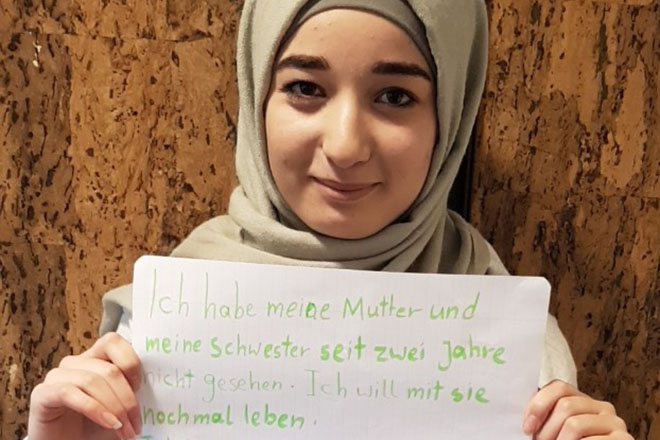 Ich habe meine Mutter und
meine Schwester seit zwei Jahre
nicht gesehen. Ich will mit sie
nochmal leben.